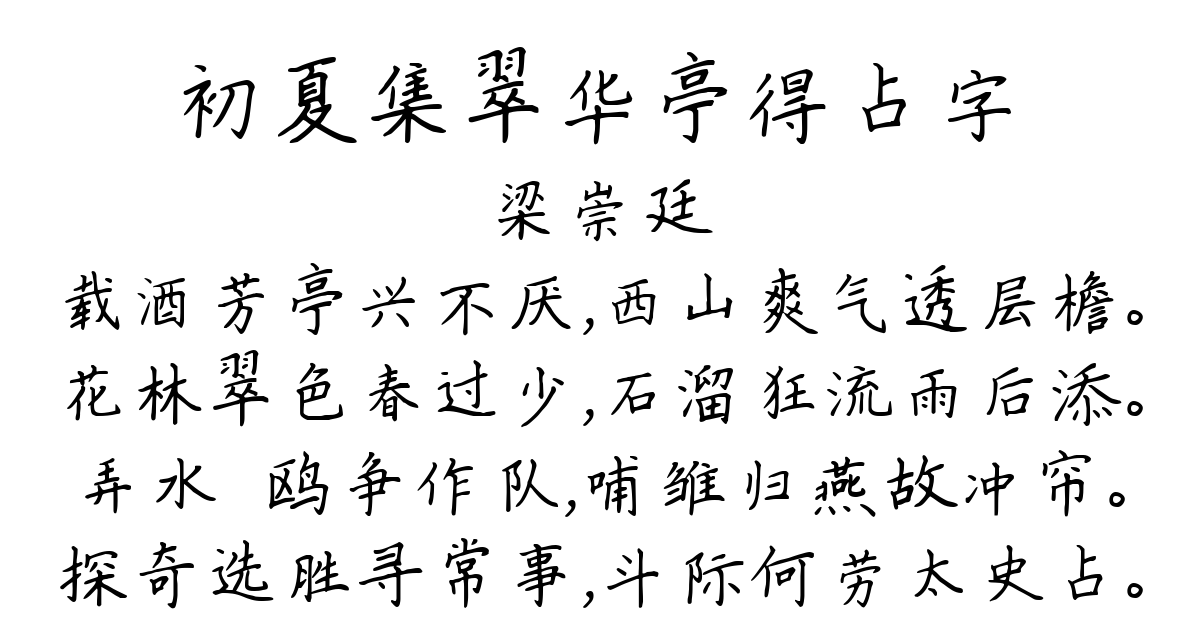 初夏集翠华亭得占字
梁崇廷
载酒芳亭兴不厌,西山爽气透层檐。
花林翠色春过少,石溜狂流雨后添。
弄水 鸥争作队,哺雏归燕故冲帘。
探奇选胜寻常事,斗际何劳太史占。